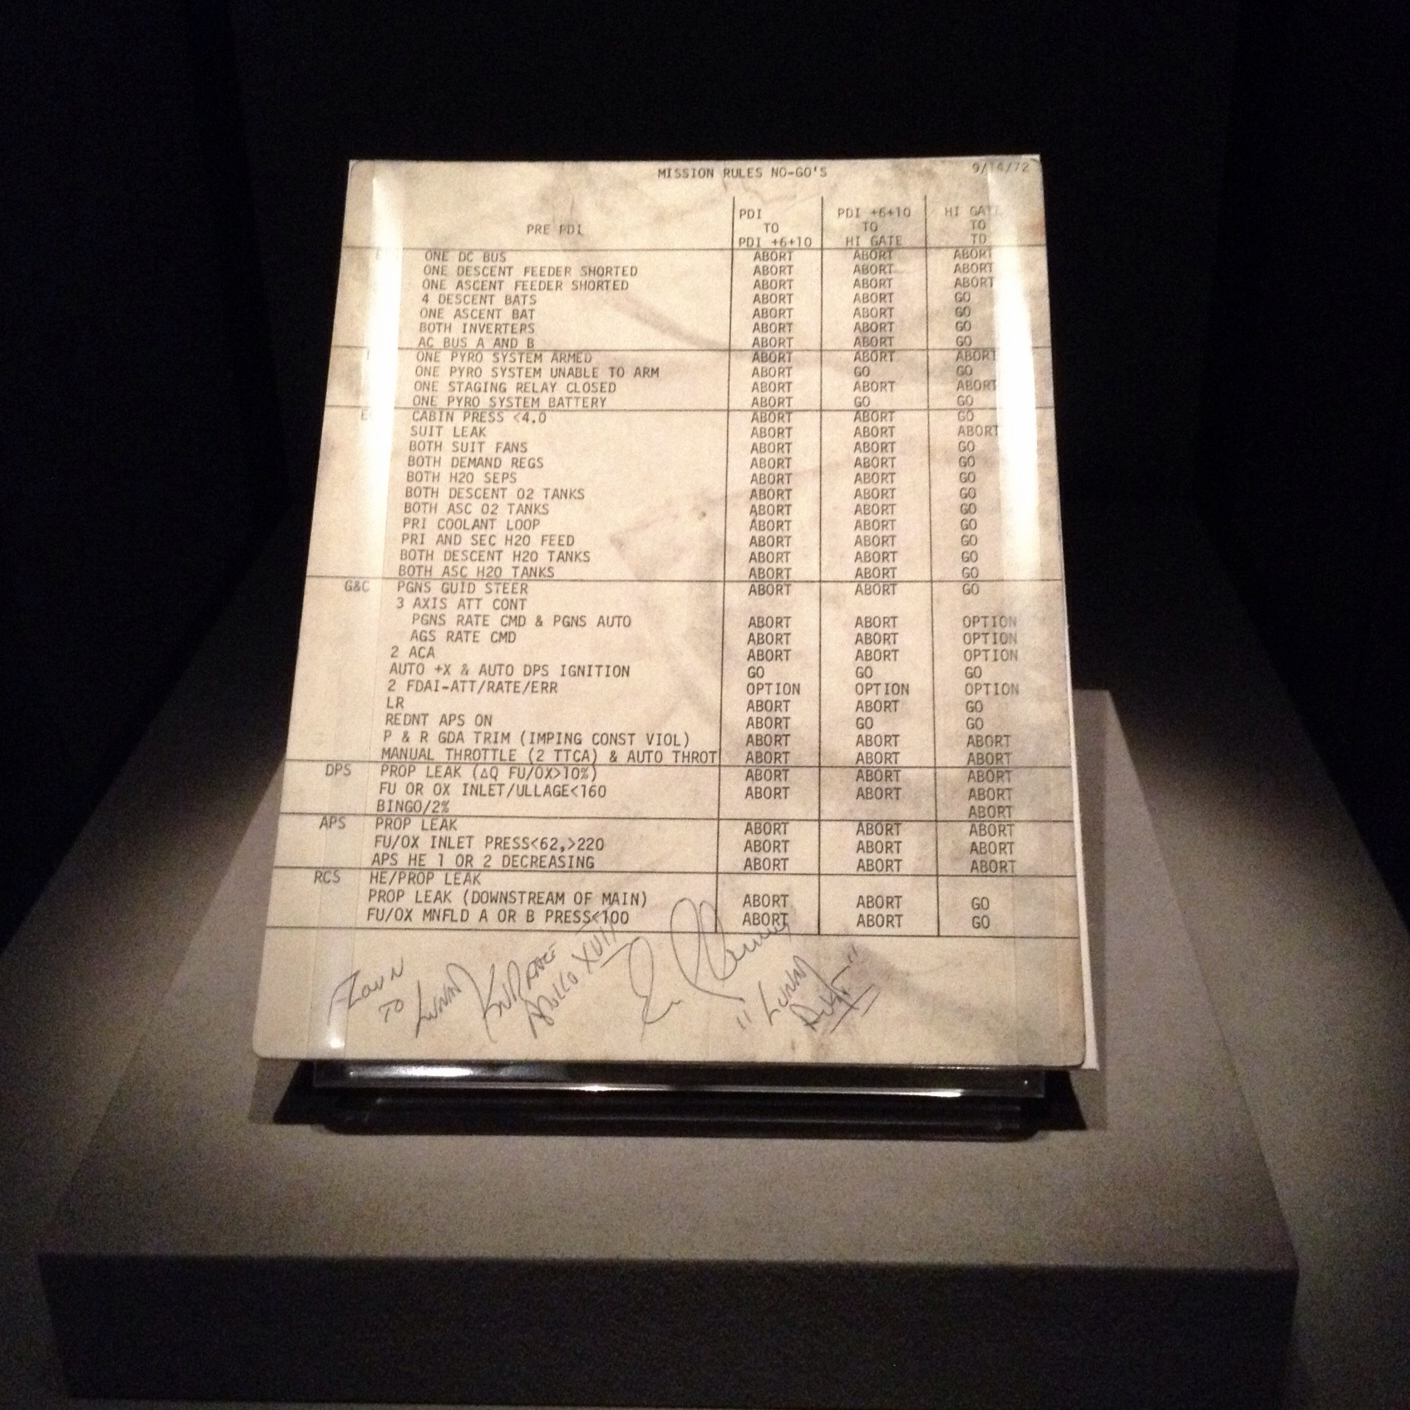 MISSION RULES NO-GO'S 9/14/72
PRE PDI PDI TO PDI +6+10 PDI +6+10 TO HI GATE HI GATE TO TD
ONE DC BUS ABORT ABORT ABORT
ONE DESCENT FEEDER SHORTED ABORT ABORT ABORT
ONE ASCENT FEEDER SHORTED ABORT ABORT ABORT
4 DESCENT BATS ABORT ABORT GO
ONE ASCENT BAT ABORT ABORT GO
BOTH INVERTERS ABORT ABORT GO
AC BUS A AND B ABORT ABORT GO
ONE PYRO SYSTEM ARMED ABORT ABORT ABORT
ONE PYRO SYSTEM UNABLE TO ARM ABORT GO GO
ONE STAGING RELAY CLOSED ABORT ABORT ABORT
ONE PYRO SYSTEM BATTERY ABORT GO GO
CABIN PRESS <4.0 ABORT ABORT GO
SUIT LEAK ABORT ABORT ABORT
BOTH SUIT FANS ABORT ABORT GO
BOTH DEMAND REGS ABORT ABORT GO
BOTH H2O SEPS ABORT ABORT GO
BOTH DESCENT O2 TANKS ABORT ABORT GO
BOTH ASC O2 TANKS ABORT ABORT GO
PRI COOLANT LOOP ABORT ABORT GO
PRI AND SEC H2O FEED ABORT ABORT GO
BOTH DESCENT H2O TANKS ABORT ABORT GO
BOTH ASC H2O TANKS ABORT ABORT GO
G&C PGNS GUID STEER ABORT ABORT GO
3 AXIS ATT CONT
PGNS RATE CMD & PGNS AUTO ABORT ABORT OPTION
AGS RATE CMD ABORT ABORT OPTION
2 ACA ABORT ABORT OPTION
AUTO +X & AUTO DPS IGNITION GO GO GO
2 FDAI-ATT/RATE/ERR OPTION OPTION OPTION
LR ABORT ABORT GO
REDNT APS ON ABORT GO GO
P & R GDA TRIM (IMPING CONST VIOL) ABORT ABORT ABORT
MANUAL THROTTLE (2 TTCA) & AUTO THROT ABORT ABORT ABORT
DPS PROP LEAK (ΔQ FU/OX>10%) ABORT ABORT ABORT
FU OR OX INLET/ULLAGE<160 ABORT ABORT ABORT
BINGO/2% ABORT
APS PROP LEAK ABORT ABORT ABORT
FU/OX INLET PRESS<62,>220 ABORT ABORT ABORT
APS HE 1 OR 2 DECREASING ABORT ABORT ABORT
RCS HE/PROP LEAK
PROP LEAK (DOWNSTREAM OF MAIN) ABORT ABORT GO
FU/OX MNFLD A OR B PRESS<100 ABORT ABORT GO
FLOWN
TO LUNAR SURFACE
APOLLO XVII
Gene Cernan
"LUNAR
DUST"